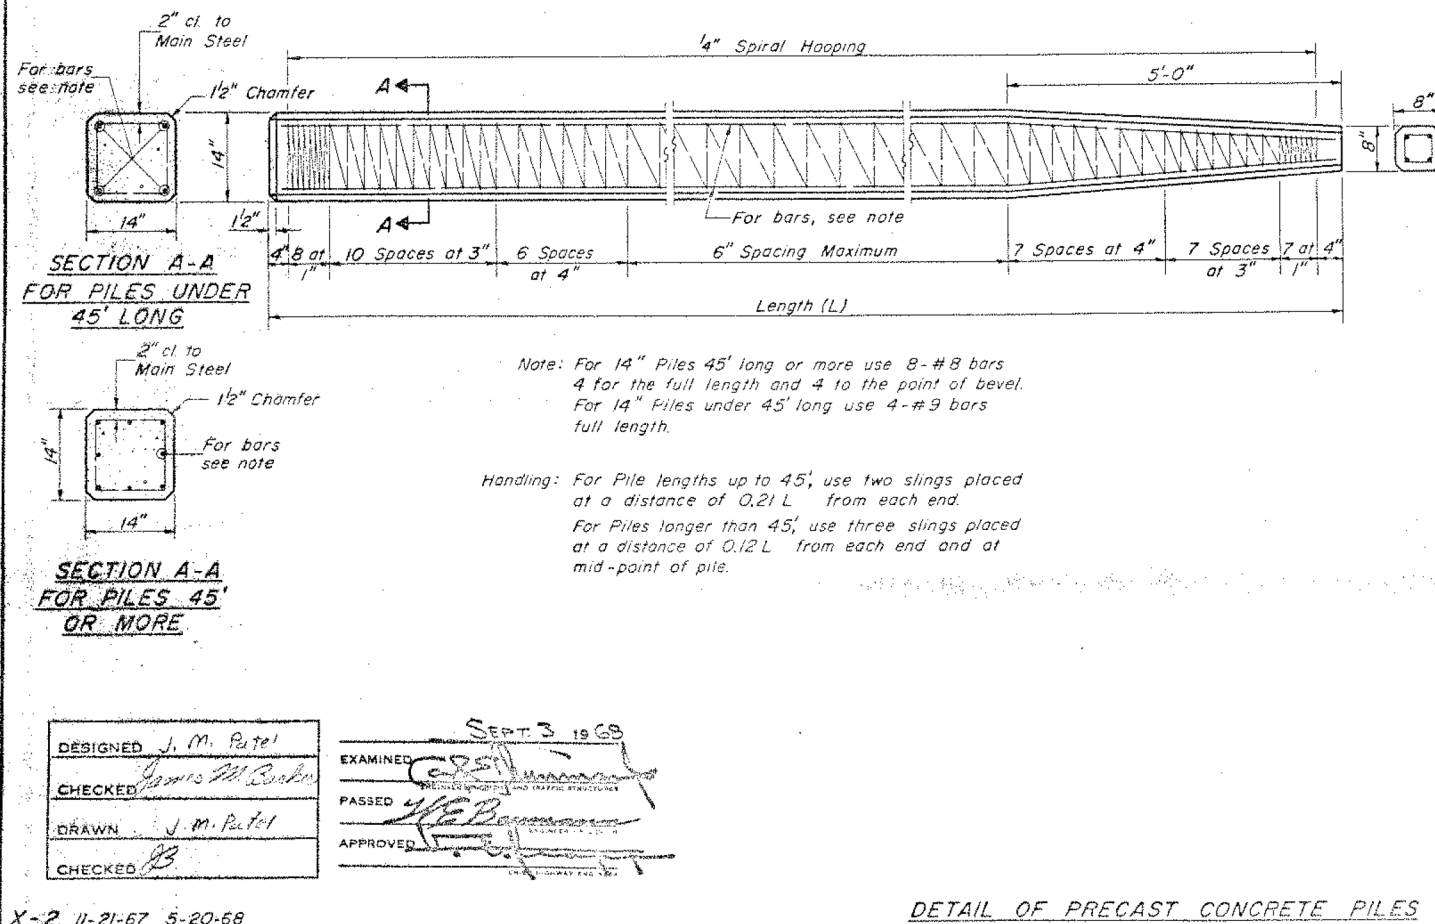 2" cl. to
Main Steel
For bars
see note
1½" Chamfer
14"
14"
SECTION A-A
FOR PILES UNDER
45' LONG
¼" Spiral Hooping
5'-0"
8"
8"
A
A
1½"
For bars, see note
4"
8 at
1"
10 Spaces at 3"
6 Spaces
at 4"
6" Spacing Maximum
7 Spaces at 4"
7 Spaces
at 3"
7 at
1"
4"
Length (L)
2" cl. to
Main Steel
1½" Chamfer
14"
For bars
see note
14"
SECTION A-A
FOR PILES 45'
OR MORE
Note: For 14" Piles 45' long or more use 8-#8 bars
4 for the full length and 4 to the point of bevel.
For 14" Piles under 45' long use 4-#9 bars
full length.
Handling: For Pile lengths up to 45', use two slings placed
at a distance of 0.21 L from each end.
For Piles longer than 45', use three slings placed
at a distance of 0.12 L from each end and at
mid-point of pile.
DESIGNED J. M. Patel
CHECKED James M. Barker
DRAWN J. M. Patel
CHECKED JB
SEPT. 3 1968
EXAMINED
PASSED
APPROVED
X-2 11-21-67 5-20-68
DETAIL OF PRECAST CONCRETE PILES